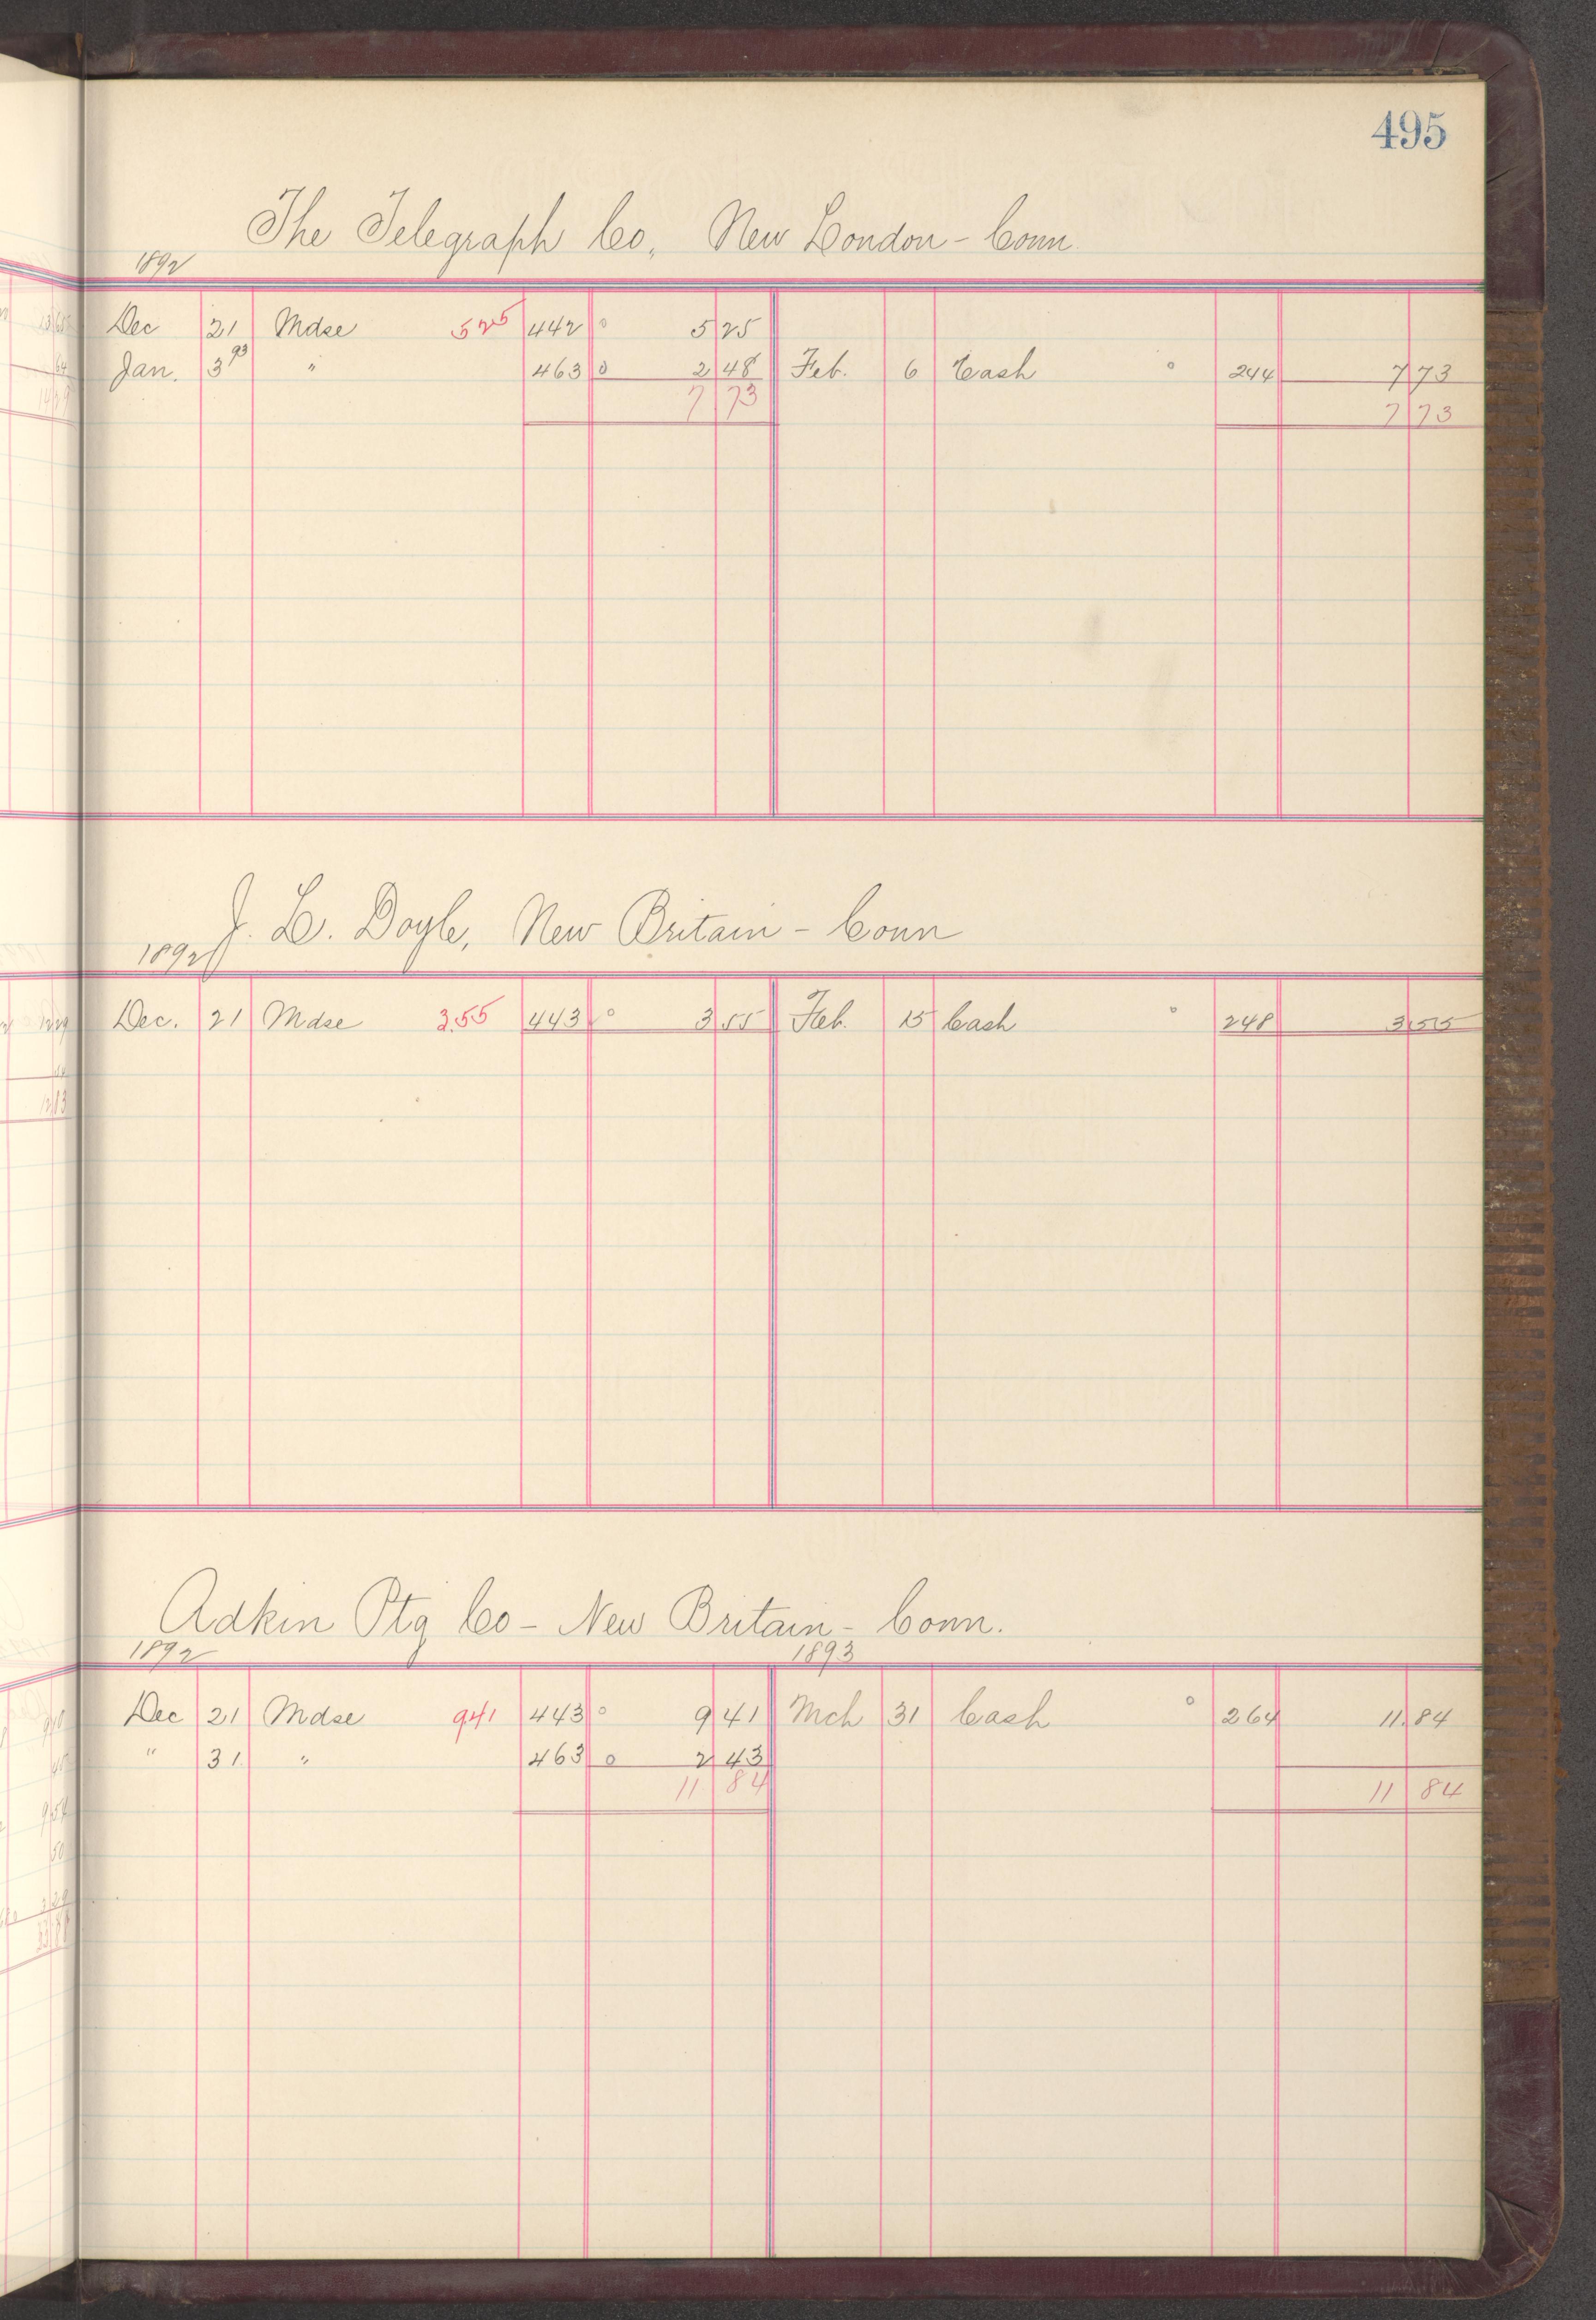 495
The Telegraph Co., New London - Conn.
1892
Dec 21 Mdse 525 442 o 5 25
Jan. 3 93 " 463 o 2 48 Feb. 6 Cash o 244 7 73
7 73 7 73
J. L. Doyle, New Britain - Conn
1892
Dec. 21 Mdse 3.55 443 o 3 55 Feb. 15 Cash o 248 3 55
Adkin Ptg Co - New Britain - Conn.
1892 1893
Dec 21 Mdse 941 443 o 9 41 Mch 31 Cash o 264 11.84
" 31 " 463 o 2 43
11 84 11 84